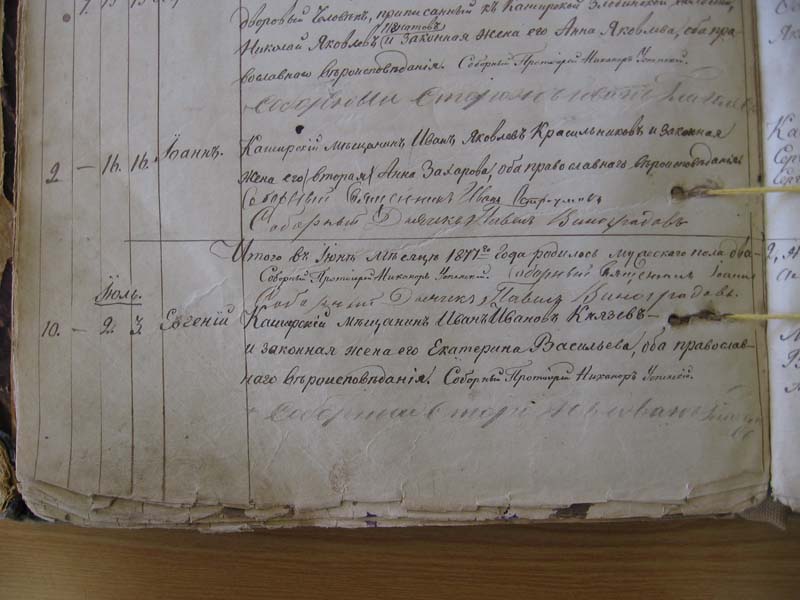 дворовый человѣкъ, приписанный къ Каширской
Игнатовъ
Николай Яковлевъ и законная жена его Анна Яковлева, оба пра-
вославнаго вѣроисповѣданія. Соборный Протоіерей Никаноръ Успенскій.
2 — 16. 16. Іоаннъ. Каширскій мѣщанинъ Иванъ Яковлевъ Красильниковъ и законная
жена его (вторая) Анна Захарова, оба православнаго вѣроисповѣданія
Соборный Священникъ Иванъ Остроумовъ
Соборный Дьячекъ Павелъ Виноградовъ
Итого въ Іюнѣ мѣсяцѣ 1877го года родилось мужескаго пола два
Соборный Протоіерей Никаноръ Успенскій. Соборный Священникъ Іоаннъ
Іюль. Соборный Дьячекъ Павелъ Виноградовъ.
10. — 2. 3. Евгеній Каширскій мѣщанинъ Иванъ Ивановъ Князевъ —
и законная жена его Екатерина Васильева, оба православ-
наго вѣроисповѣданія. Соборный Протоіерей Никаноръ Успенскій.